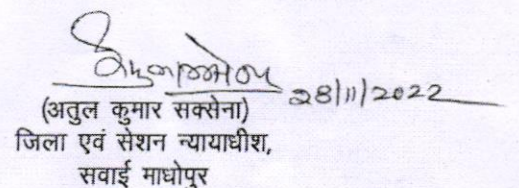 28/11/2022
(अतुल कुमार सक्सेना)
जिला एवं सेशन न्यायाधीश,
सवाई माधोपुर